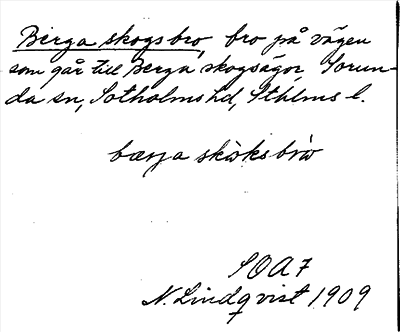 Berga skogsbro, bro på vägen
som går till Berga skogsägor, Sorun-
da sn, Sotholms hd, Sthlms l.
bærja skòksbrò
SOA 7
N. Lindqvist 1909